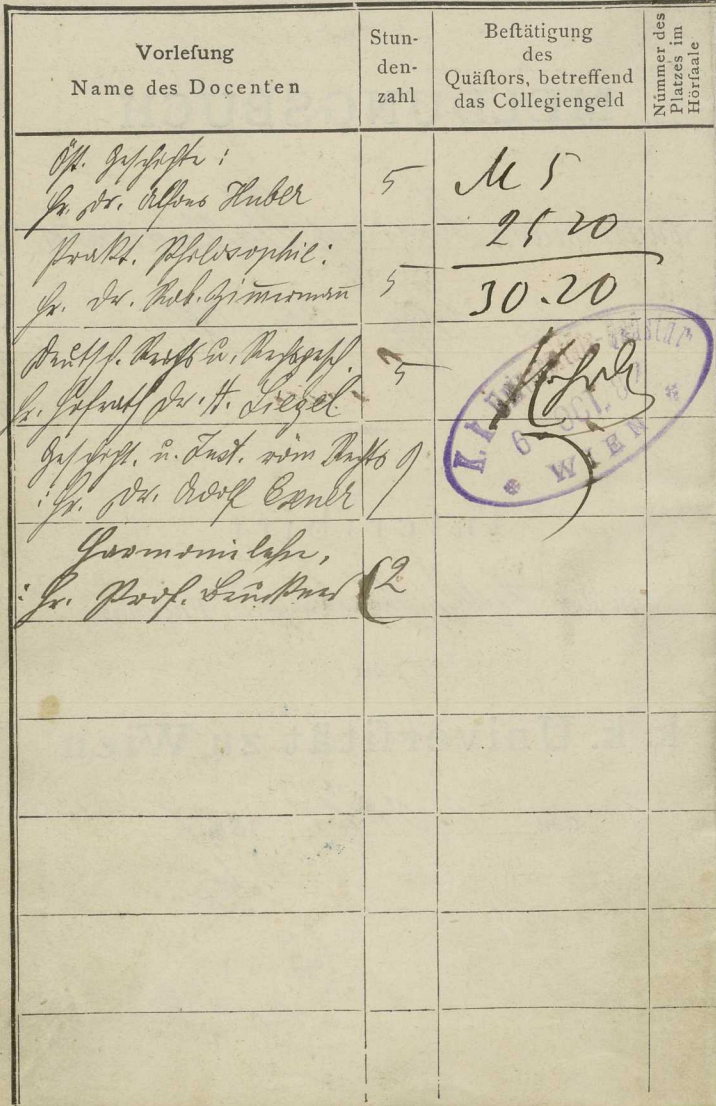 Vorleſung
Name des Docenten
Stun-
den-
zahl
Beſtätigung
des
Quäſtors, betreffend
das Collegiengeld
Nummer des
Platzes im
Hörſaale
Öst. Geschichte :
Hr. Dr. Alfons Huber
5
M 5
25 20
Prakt. Philosophie :
Hr. Dr. Rob. Zimmermann
5
30.20
Deutsch. Rechts u. Rechtsgesch.
Hr. Hofrath Dr. H. Siegel
5
K. k. Universitäts-Quästur
6 OCT. 87
* WIEN *
Geschicht. u. Inst. röm Rechts
: Hr. Dr. Adolf Exner
9
Harmonielehre,
: Hr. Prof. Bruckner
2
k.k. Universität zu Wien